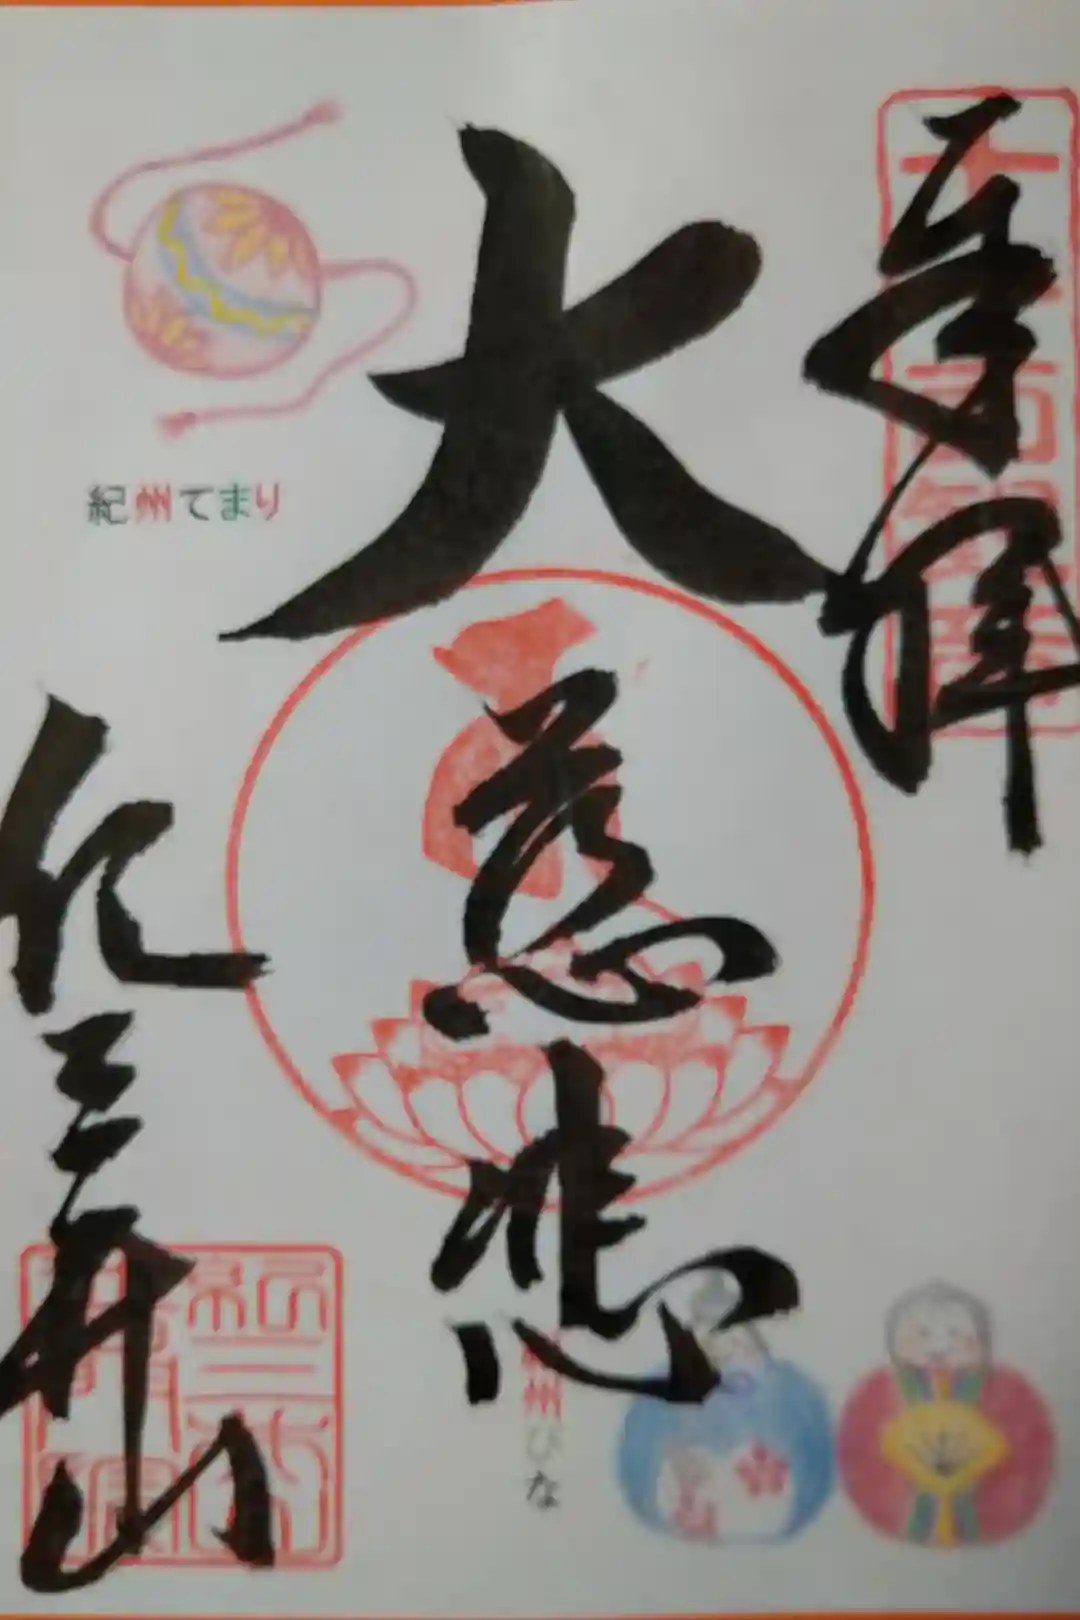 奉拝
大慈悲
紀州てまり
紀三井山
紀州びな